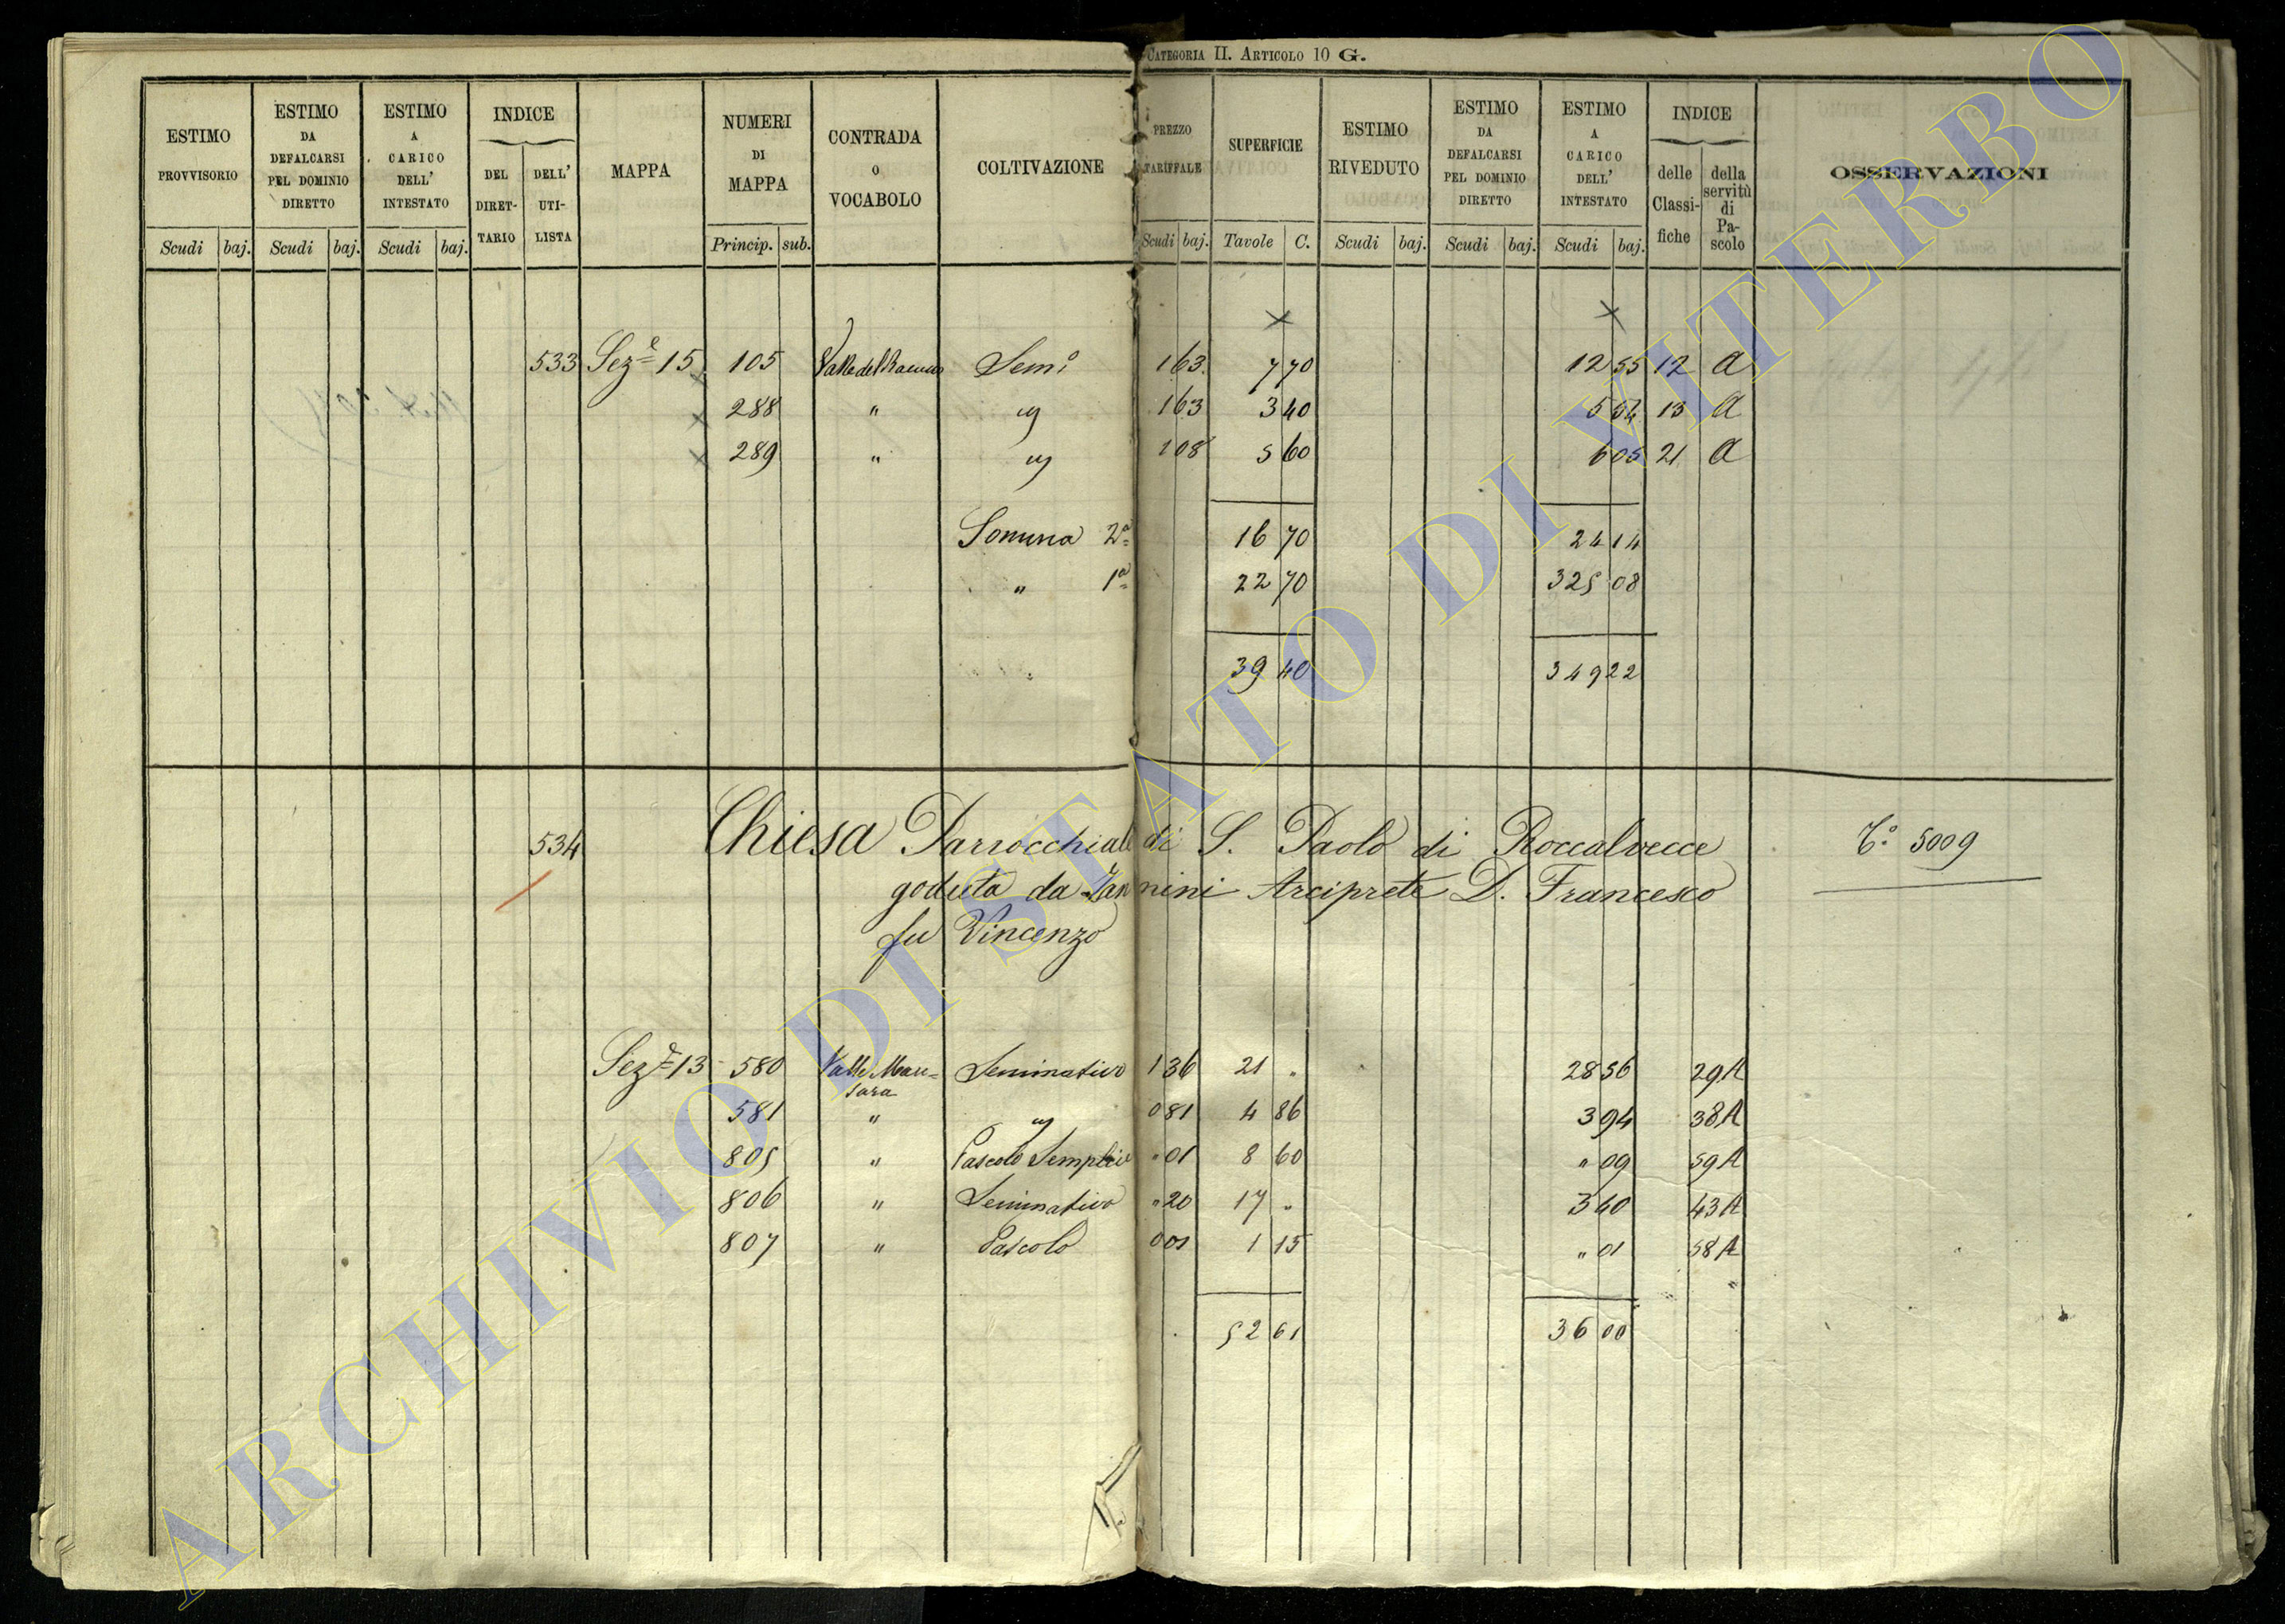 CATEGORIA II. ARTICOLO 10 G.
ESTIMO PROVVISORIO Scudi baj.
ESTIMO DA DEFALCARSI PEL DOMINIO DIRETTO Scudi baj.
ESTIMO A CARICO DELL' INTESTATO Scudi baj.
INDICE DEL DIRETTARIO DELL' UTILISTA
MAPPA
NUMERI DI MAPPA Princip. sub.
CONTRADA O VOCABOLO
COLTIVAZIONE
PREZZO TARIFFALE Scudi baj.
SUPERFICIE Tavole C.
ESTIMO RIVEDUTO Scudi baj.
ESTIMO DA DEFALCARSI PEL DOMINIO DIRETTO Scudi baj.
ESTIMO A CARICO DELL' INTESTATO Scudi baj.
INDICE delle Classifiche della servitù di Pascolo
OSSERVAZIONI
533 Sez.e 15 105 Valle del Sem.o 1 63 7 70 12 55 12 A
288 " " 1 63 3 40 5 54 13 A
289 " " 1 08 5 60 6 05 21 A
Somma 2a 16 70 24 14
" 1a 22 70 325 08
39 40 349 22
534 Chiesa Parrocchiale di S. Paolo di Roccalvecce T.o 5009
goduta da Zannini Arciprete D. Francesco
fu Vincenzo
Sez.e 13 580 Valle Mass= Seminativo 1 36 21 " 28 56 29 A
sara
581 " " 0 81 4 86 3 94 38 A
805 " Pascolo Semplice " 01 8 60 " 09 59 A
806 " Seminativo " 20 17 " 3 40 43 A
807 " Pascolo 0 01 1 15 " 01 58 A
52 61 36 00
ARCHIVIO DI STATO DI VITERBO